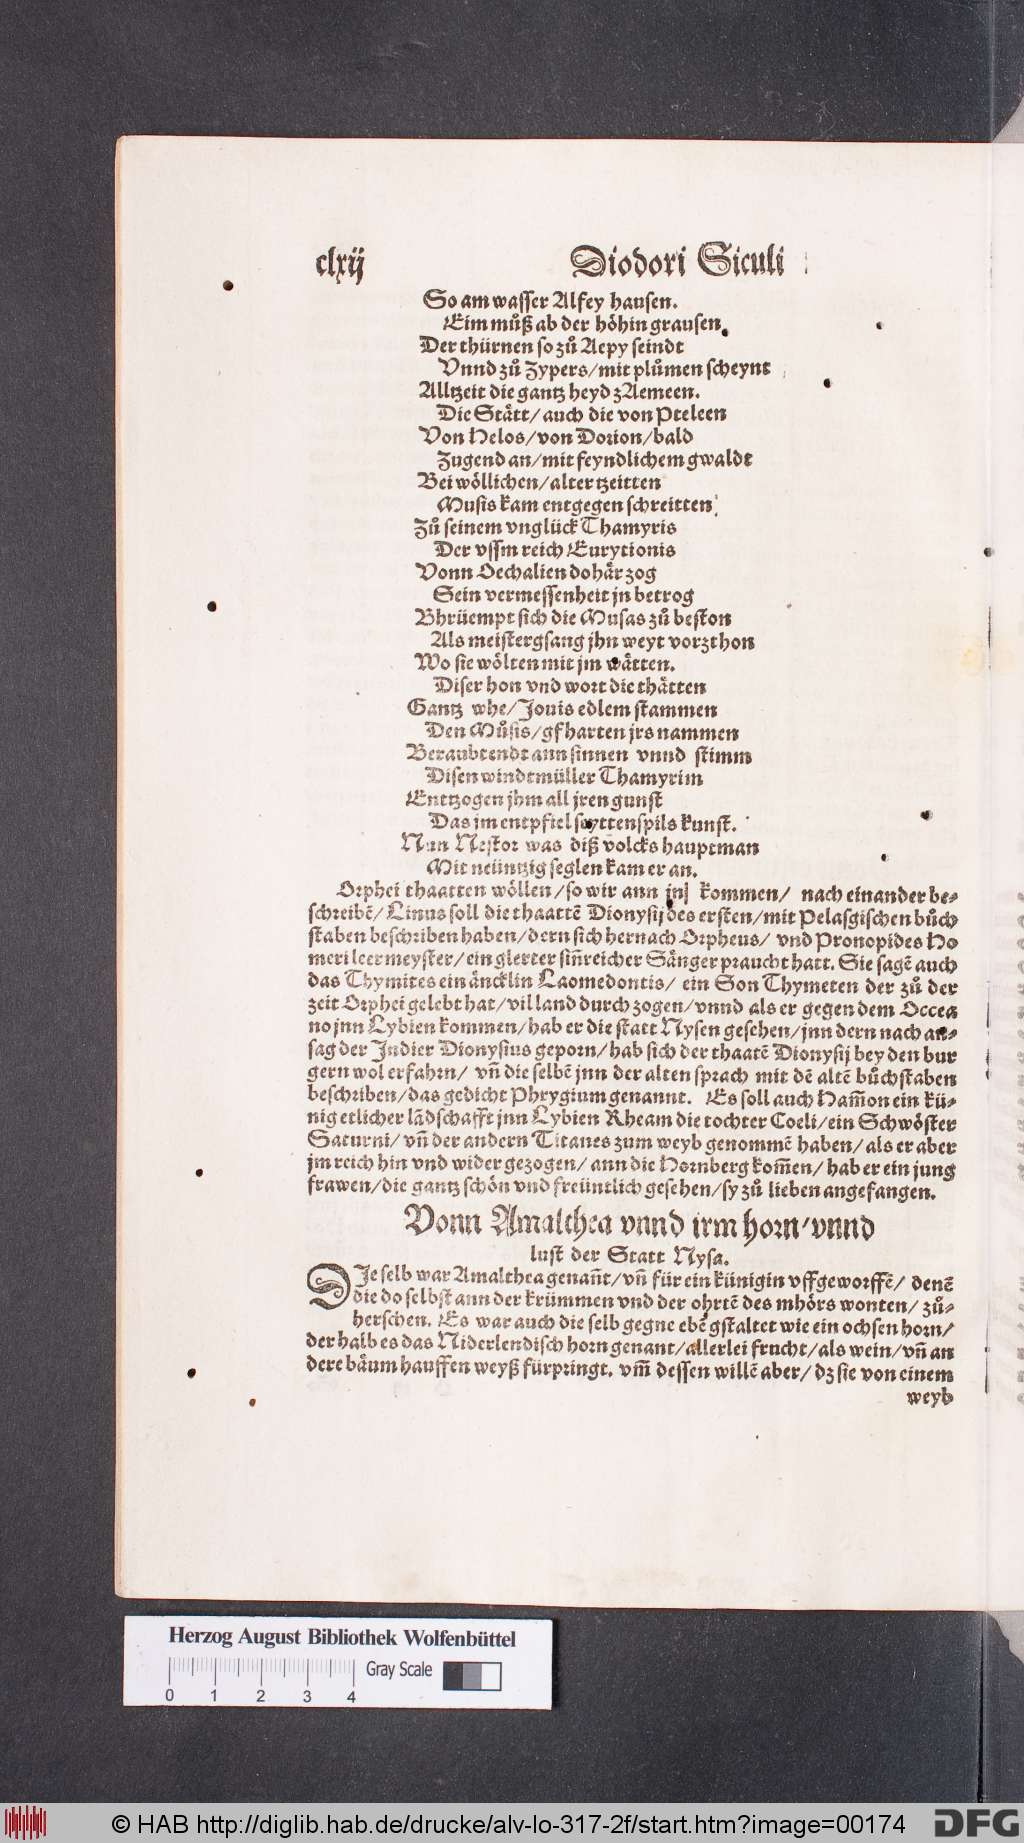 clxij Diodori Siculi
So am wasser Alfey hausen.
Eim můß ab der höhin grausen
Der thürnen so zů Aepy seindt
Vnnd zů Zypers/mit plůmen scheynt
Alltzeit die gantz heyd zAemeen.
Die Stätt/auch die von Pteleen
Von Helos/von Dorion/bald
Zugend an/mit feyndlichem gwaldt
Bei wöllichen/alter tzeitten
Musis kam entgegen schreitten
Zů seinem vnglück Thamyris
Der vssm reich Eurytionis
Vonn Oechalien do här zog
Sein vermessenheit jn betrog
Bhrüempt sich die Musas zů beston
Als meistergsang jhn weyt vorzthon
Wo sie wölten mit jm wätten.
Diser hon vnd wort die thätten
Gantz whe/Jouis edlem stammen
Den Můsis/gfharten jrs nammen
Beraubtendt ann sinnen vnnd stimm
Disen windtmüller Thamyrim
Enttzogen jhm all jren gunst
Das jm entpfiel seyttenspils kunst.
Nun Nestor was diß volcks hauptman
Mit neüntzig seglen kam er an.
Orphei thaatten wöllen/so wir ann jn kommen/ nach einander be-
schreibē/Linus soll die thaattē Dionysij des ersten/mit Pelasgischen bůch
staben beschriben haben/dern sich hernach Orpheus/ vnd Pronopides Ho
meri leermeyster/ein glerter siñreicher Sänger praucht hatt. Sie sagē auch
das Thymites ein äncklin Laomedontis/ ein Son Thymeten der zů der
zeit Orphei gelebt hat/vil land durch zogen/vnnd als er gegen dem Occea
no jnn Lybien kommen/hab er die statt Nysen gesehen/jnn dern nach an-
sag der Indier Dionysius geporn/hab sich der thaatē Dionysij bey den bur
gern wol erfahrn/ vñ die selbē jnn der alten sprach mit dē altē bůchstaben
beschriben/das gedicht Phrygium genannt. Es soll auch Ham̄on ein kü-
nig etlicher lādschafft jnn Lybien Rheam die tochter Coeli/ein Schwöster
Saturni/vñ der andern Titanes zum weyb genommē haben/als er aber
jm reich hin vnd wider gezogen/ann die Hornberg kom̄en/hab er ein jung
frawen/die gantz schön vnd freüntlich gesehen/sy zů lieben angefangen.
Vonn Amalthea vnnd irm horn/vnnd
lust der Statt Nysa.
DJe selb war Amalthea genañt/vñ für ein künigin vffgeworffē/ denē
die do selbst ann der krümmen vnd der ohrtē des mhörs wonten/ zů-
herschen. Es war auch die selb gegne ebē gstaltet wie ein ochsen horn/
der halb es das Niderlendisch horn genant/allerlei frucht/als wein/vñ an
dere bäum hauffen weyß fürpringt. vm̄ dessen willē aber/dz sie von einem
weyb
Herzog August Bibliothek Wolfenbüttel
Gray Scale
0 1 2 3 4
© HAB http://diglib.hab.de/drucke/alv-lo-317-2f/start.htm?image=00174 DFG